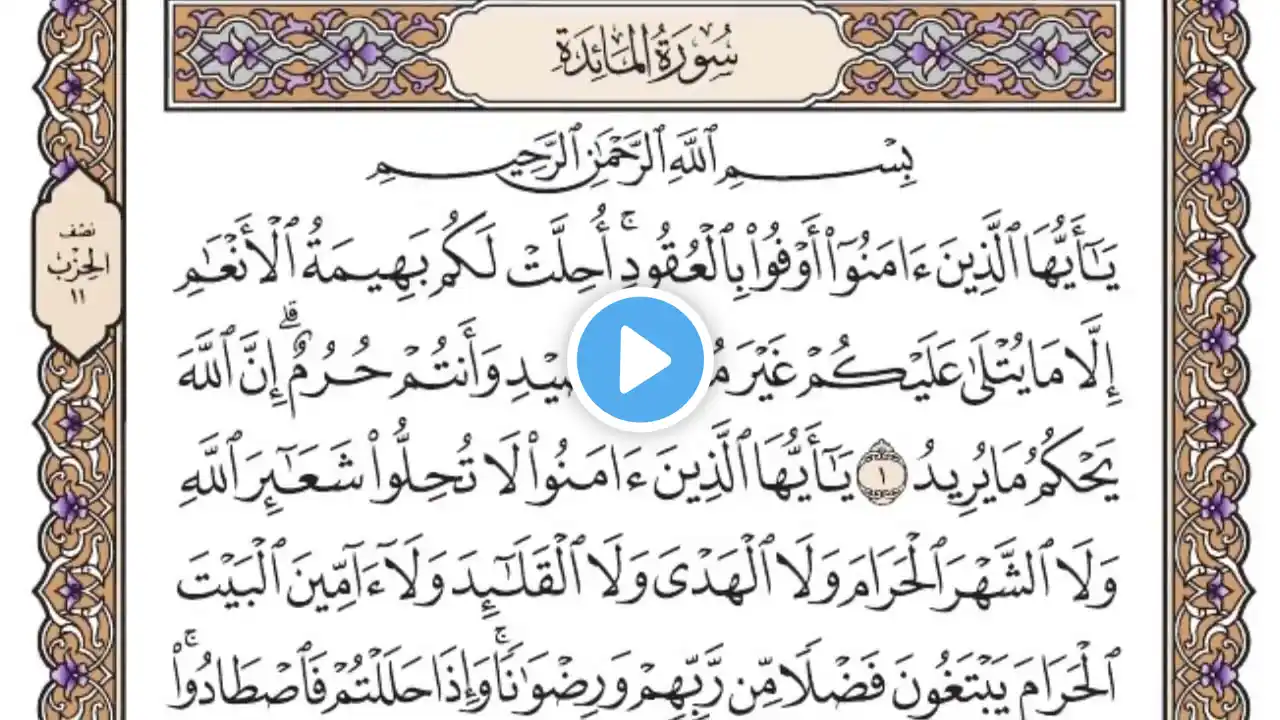 سُورَةُ المَائِدَةِ
بِسۡمِ ٱللَّهِ ٱلرَّحۡمَٰنِ ٱلرَّحِيمِ
يَٰٓأَيُّهَا ٱلَّذِينَ ءَامَنُوٓاْ أَوۡفُواْ بِٱلۡعُقُودِۚ أُحِلَّتۡ لَكُم بَهِيمَةُ ٱلۡأَنۡعَٰمِ
إِلَّا مَا يُتۡلَىٰ عَلَيۡكُمۡ غَيۡرَ وَأَنتُمۡ حُرُمٌۗ إِنَّ ٱللَّهَ
يَحۡكُمُ مَا يُرِيدُ ١ يَٰٓأَيُّهَا ٱلَّذِينَ ءَامَنُواْ لَا تُحِلُّواْ شَعَٰٓئِرَ ٱللَّهِ
وَلَا ٱلشَّهۡرَ ٱلۡحَرَامَ وَلَا ٱلۡهَدۡيَ وَلَا ٱلۡقَلَٰٓئِدَ وَلَآ ءَآمِّينَ ٱلۡبَيۡتَ
ٱلۡحَرَامَ يَبۡتَغُونَ فَضۡلٗا مِّن رَّبِّهِمۡ وَرِضۡوَٰنٗاۚ وَإِذَا حَلَلۡتُمۡ فَٱصۡطَادُواْۚ
نصف
الحزب
١١